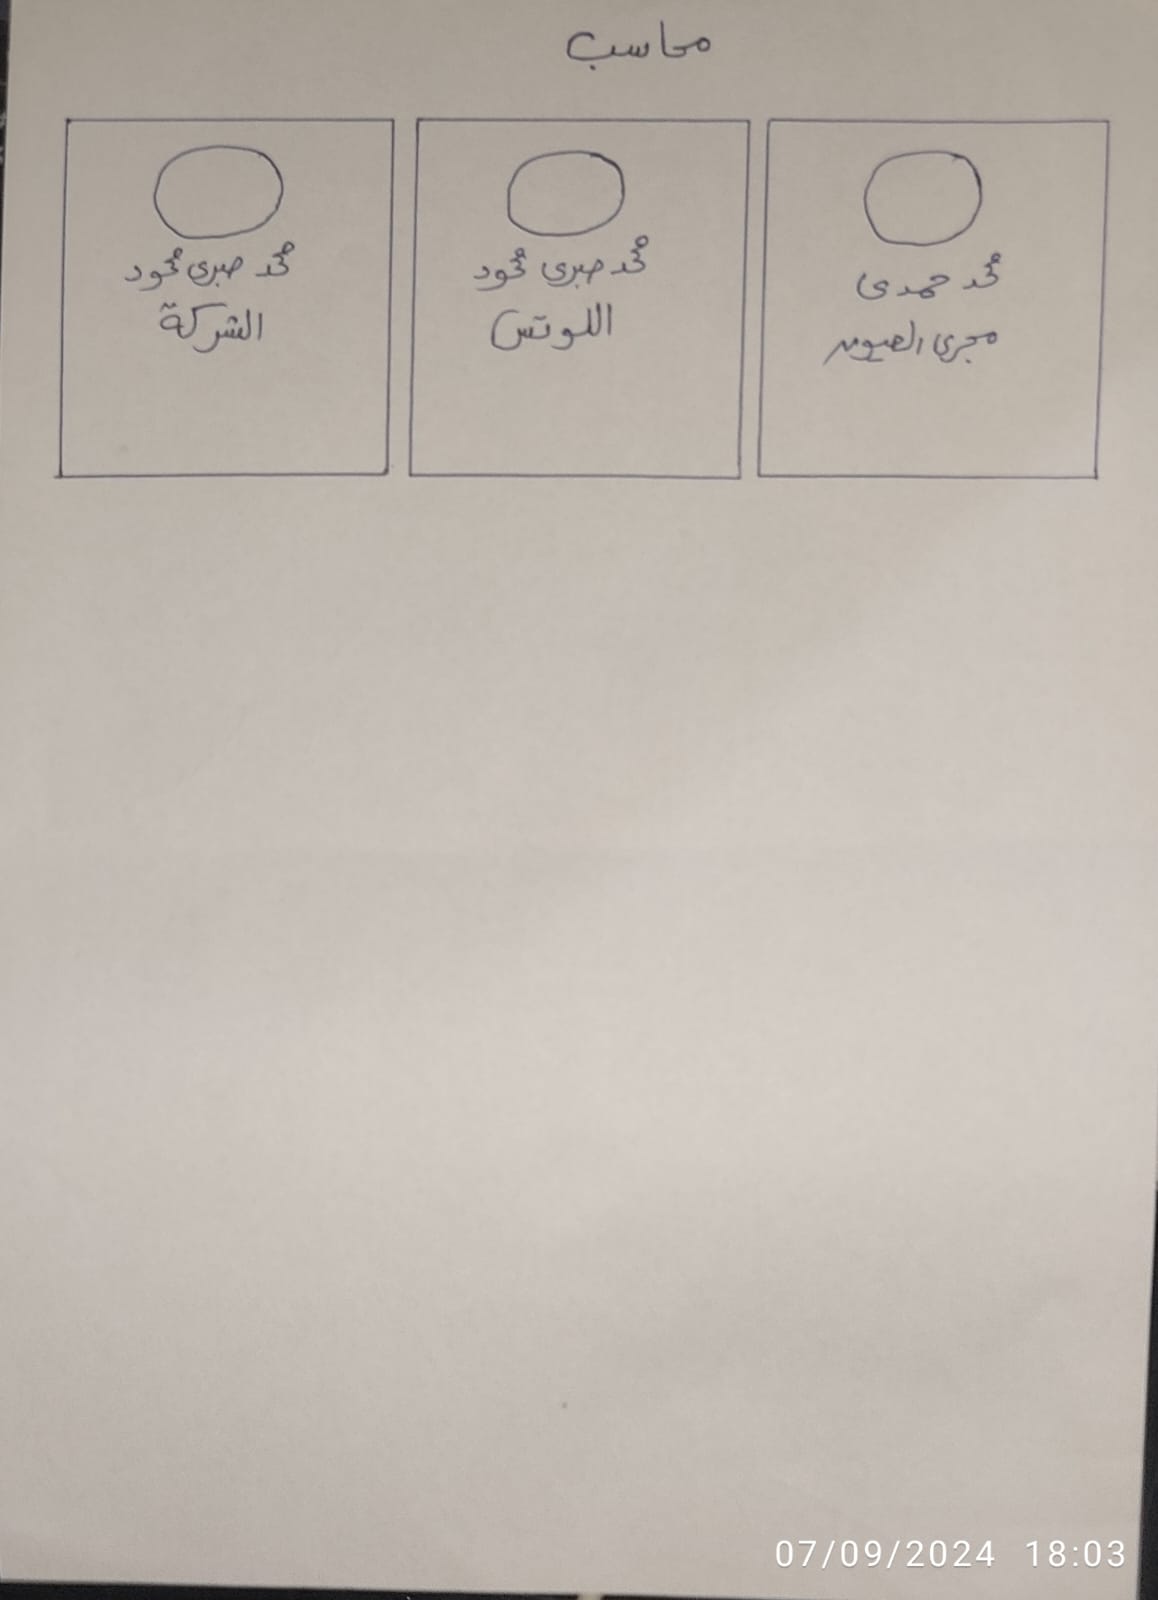 محاسب
محمد حمدى
مجرى العيون
محمد صبرى محمود
اللوتس
محمد صبرى محمود
الشركة
07/09/2024 18:03